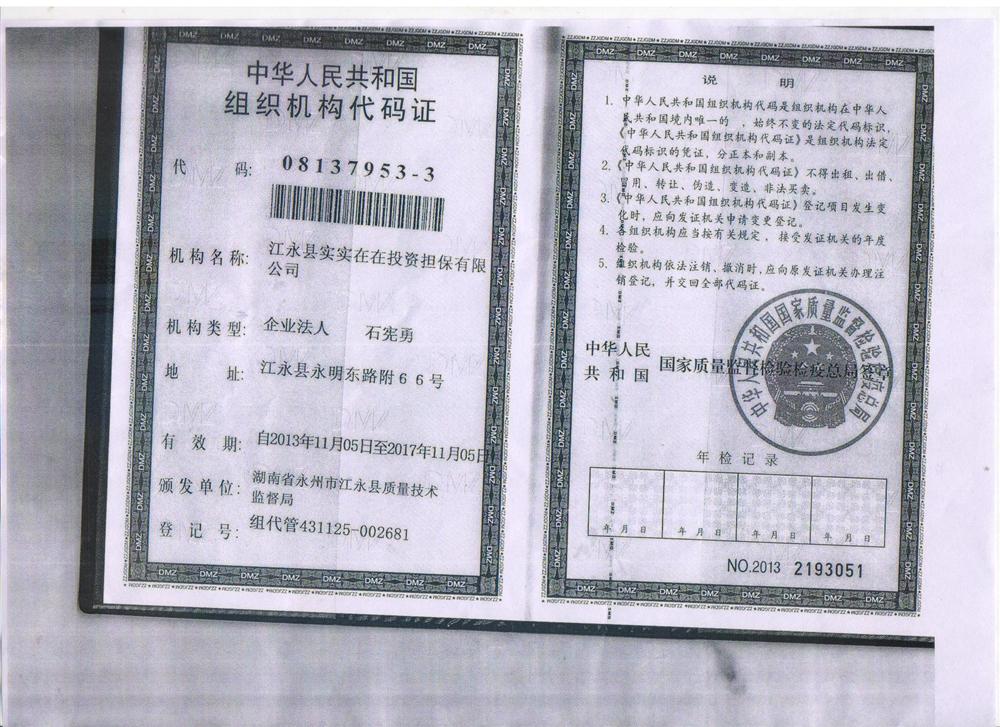 中华人民共和国
组织机构代码证
代 码: 08137953-3
机构名称: 江永县实实在在投资担保有限
公司
机构类型: 企业法人 石宪勇
地 址: 江永县永明东路附66号
有 效 期: 自2013年11月05日至2017年11月05日
颁发单位: 湖南省永州市江永县质量技术
监督局
登 记 号: 组代管431125-002681
说 明
1. 中华人民共和国组织机构代码是组织机构在中华人
民共和国境内唯一的 、始终不变的法定代码标识,
《中华人民共和国组织机构代码证》是组织机构法定
代码标识的凭证,分正本和副本。
2.《中华人民共和国组织机构代码证》不得出租、出借、
冒用、转让、伪造、变造、非法买卖。
3.《中华人民共和国组织机构代码证》登记项目发生变
化时,应向发证机关申请变更登记。
4. 各组织机构应当按有关规定,接受发证机关的年度
检验。
5. 组织机构依法注销、撤消时,应向原发证机关办理注
销登记,并交回全部代码证。
中华人民
共和国 国家质量监督检验检疫总局签章
中华人民共和国国家质量监督检验检疫总局
年检记录
年 月 日 年 月 日 年 月 日 年 月 日
NO.2013 2193051